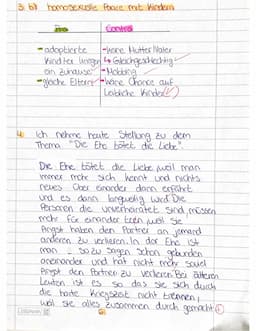 3. b) homosexuelle Paare mit Kindern
Pro Contra
- adoptierte - keine Mutter/Vater
Kinder Gleichgeschlechtig
ein zuhause - Mobbing
- gleiche Eltern - keine Chance auf
Leibliche Kinder (✓)
4. Ich nehme heute Stellung zu dem
Thema "Die Ehe tötet die Liebe".
Die Ehe tötet die Liebe, weil man
immer mehr sich kennt und nichts
neues über einander dann erfährt
und es dann langweilig wird. Die
Personen die unverheiratet sind, müssen
mehr für einander tun, weil sie
Angst haben den Partner an jemand
anderen zu verlieren. In der Ehe ist
man so zu sagen schon gebunden
aneinander und hat nicht mehr soviel
Angst den Partner zu verlieren. Bei älteren
Leuten ist es so das sie sich durch
die harte Kriegszeit nicht trennen,
weil sie alles zusammen durch gemacht